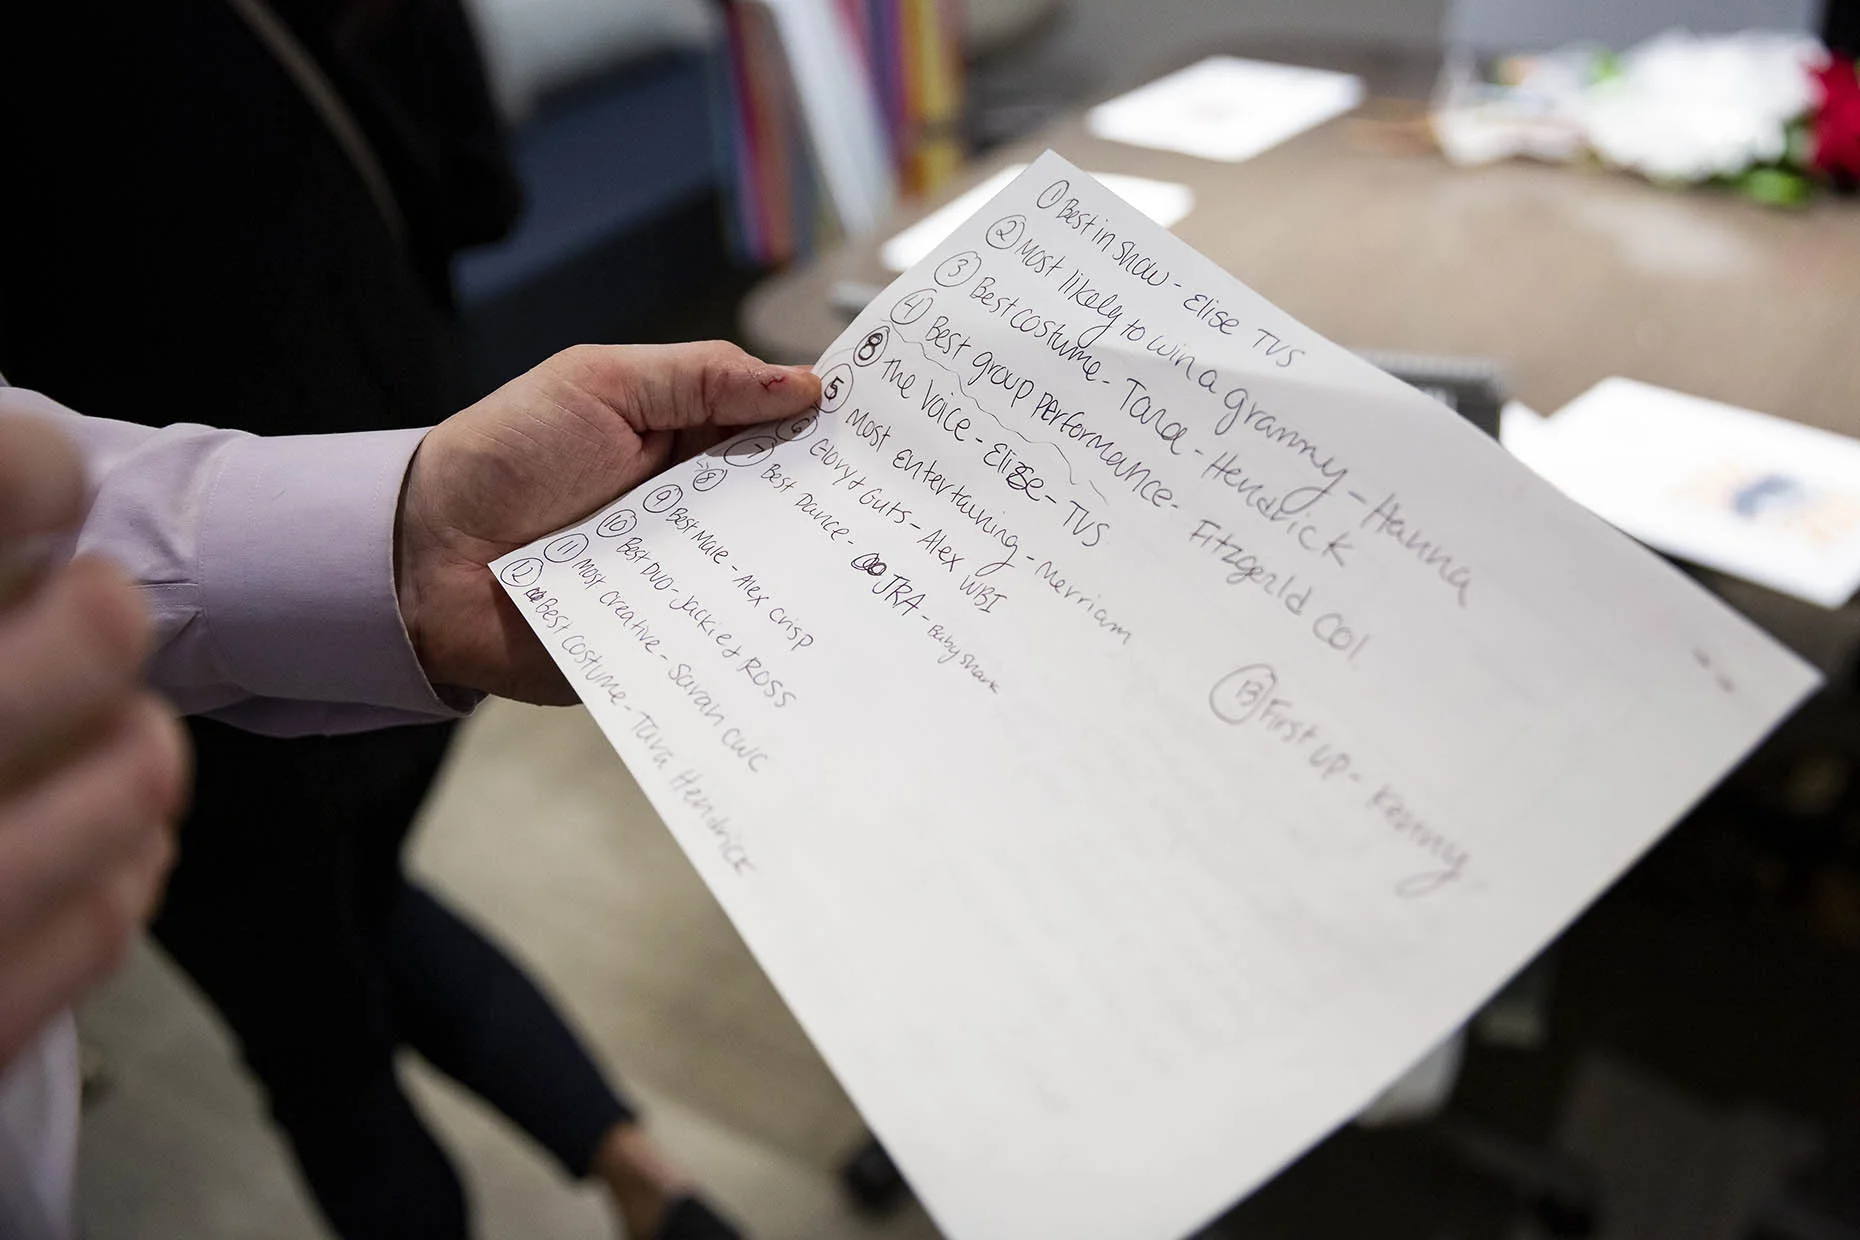 ① Best in Show - Elise TVS
② Most likely to win a grammy - Hanna
③ Best costume - Tara - Hendrick
④ Best group performance - Fitzgerald Col.
⑧ The Voice - Elise - TVS
⑤ most entertaining - merriam
⑥ Glory & Guts - Alex WBI
⑦ Best Dance - JRA - Baby shark
→ ⑧
⑨ Best Male - Alex Crisp
⑩ Best DUO - Jackie & ROSS
⑪ Most creative - Sarah CWC
⑫ Best Costume - Tara Hendrick
⑬ First up -